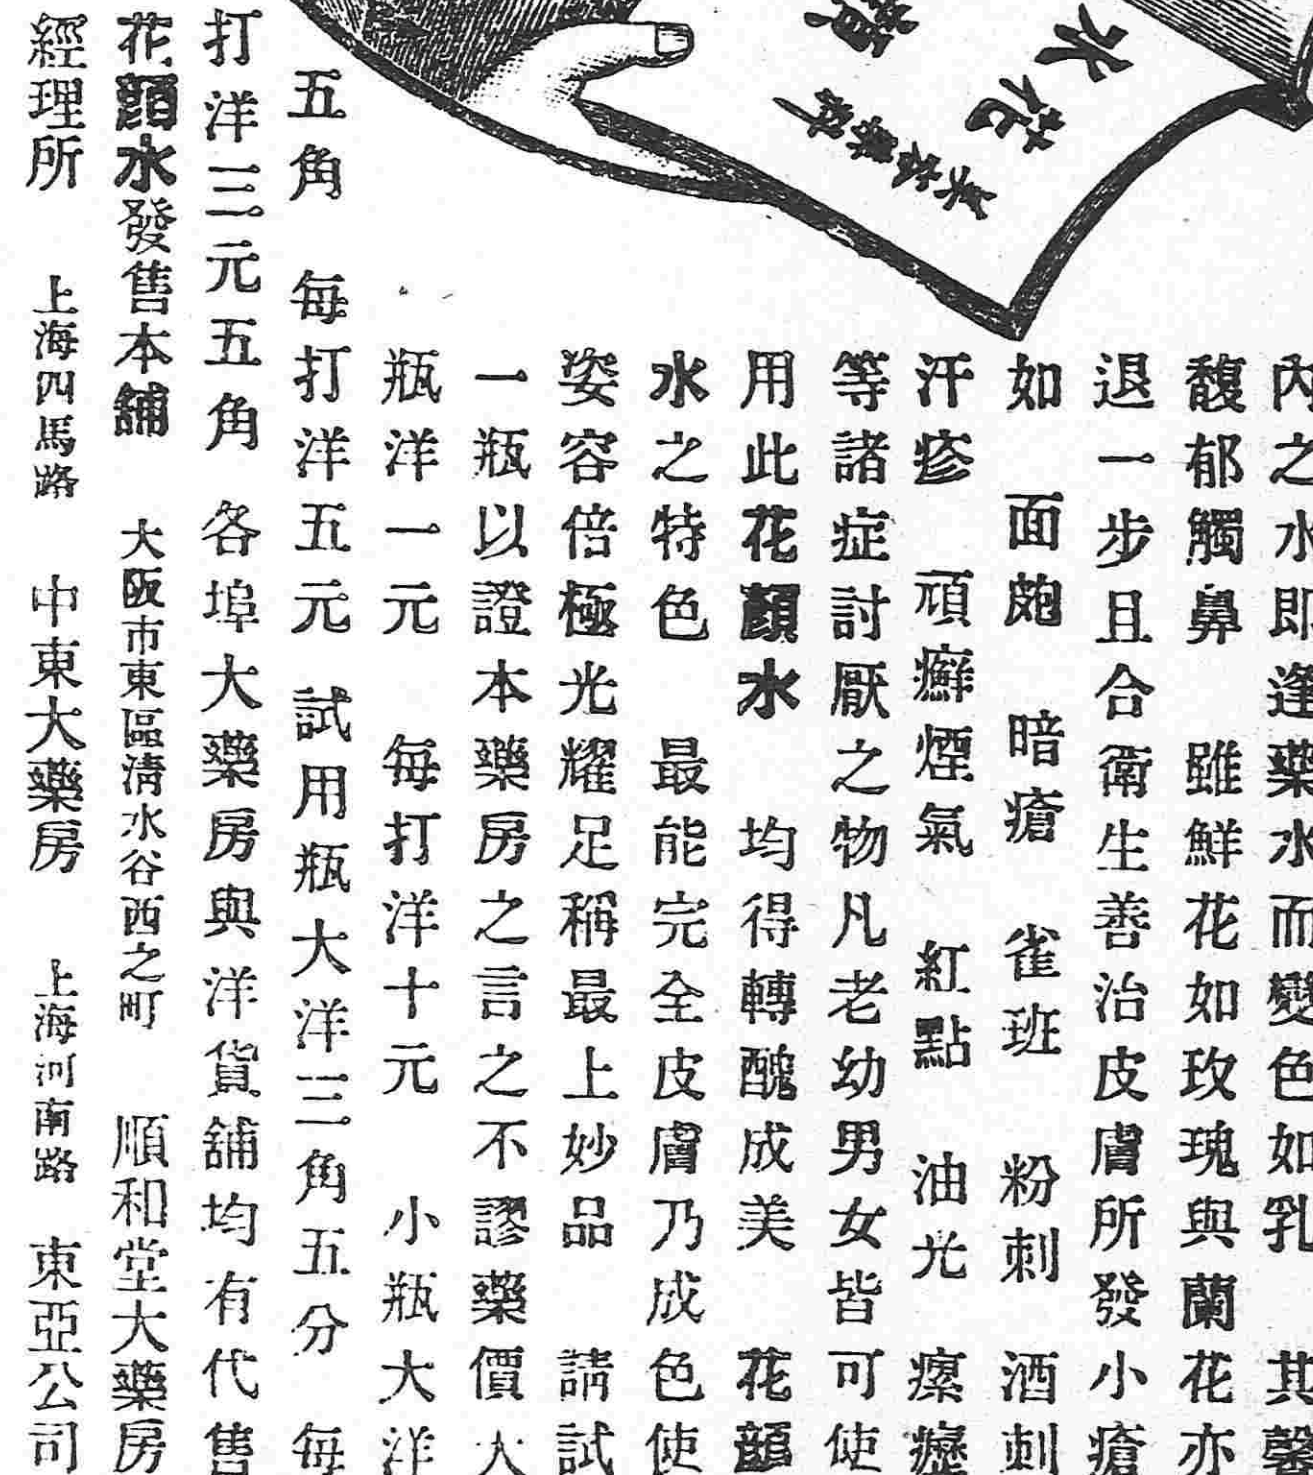 內之水即逢藥水而變色如乳 其馨
馥郁觸鼻 雖鮮花如玫瑰與蘭花亦
退一步且合衛生善治皮膚所發小瘡
如 面皰 暗瘡 雀班 粉刺 酒刺
汗疹 頑癬煙氣 紅點 油光 瘰癧
等諸症討厭之物凡老幼男女皆可使
用此花顏水 均得轉醜成美 花顏
水之特色 最能完全皮膚乃成色使
姿容倍極光耀足稱最上妙品 請試
一瓶以證本藥房之言之不謬藥價大
瓶洋一元 每打洋十元 小瓶大洋
五角 每打洋五元 試用瓶大洋三角五分 每
打洋三元五角 各埠大藥房與洋貨舖均有代售
花顏水發售本舖 大阪市東區清水谷西之町 順和堂大藥房
經理所 上海四馬路 中東大藥房 上海河南路 東亞公司
水花